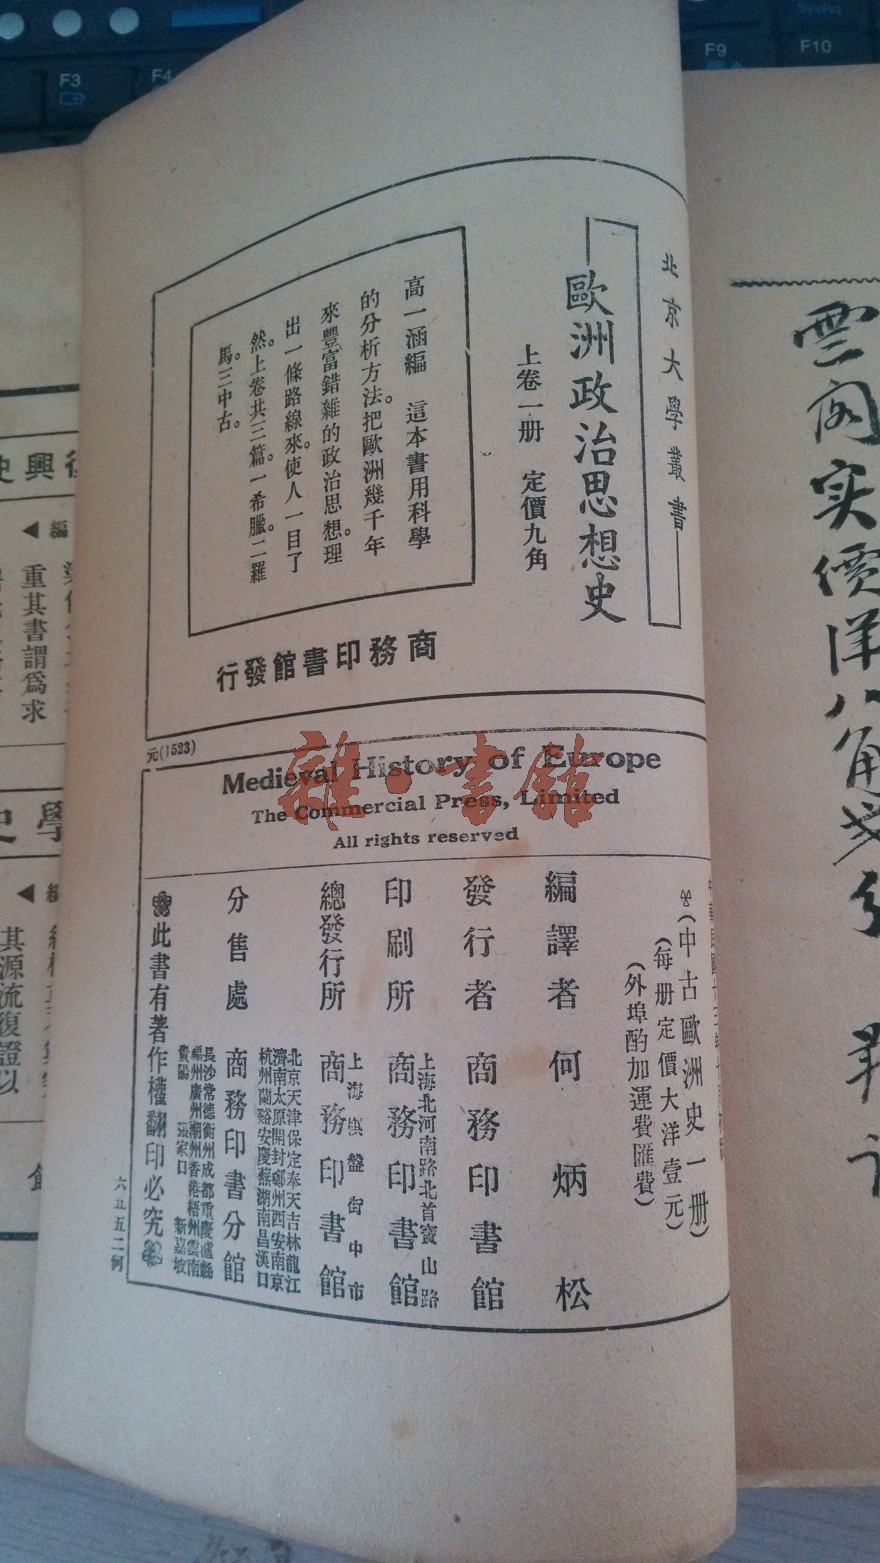 北京大學叢書
歐洲政治思想史
上卷一册 定價九角
高一涵編 這本書用科學
的分析方法。把歐洲幾千年
來豐富錯雜的政治思想。理
出一條路線來。使人一目了
然。上卷共三篇。一希臘。二羅
馬。三中古。
商務印書館發行
元(1523)
Medieval History of Europe
The Commercial Press, Limited
All rights reserved
(中古歐洲史一册)
(每册定價大洋壹元)
(外埠酌加運費匯費)
編譯者 何炳松
發行者 商務印書館
印刷所 上海北河南路北首寶山路 商務印書館
總發行所 上海棋盤街中市 商務印書館
分售處 商務印書分館
北京天津保定奉天吉林龍江
濟南太原開封鄭州西安南京
杭州蘭谿安慶蕪湖南昌漢口
長沙常德衡州成都重慶瀘縣
福州廣州潮州香港梧州雲南
貴陽 張家口 新嘉坡
此書有著作權翻印必究
六五五二何
雜·書館
復興史
重其書謂爲求
學史
其源流復證以
F3
F4
F9
F10
SysRq